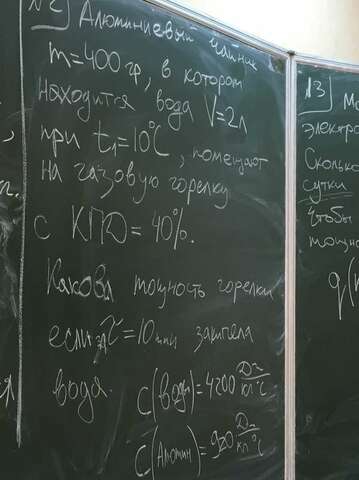 №2) Алюминиевый чайник
m=400 гр, в котором
находится вода V=2л
при t₁=10°C, помещают
на газовую горелку
с КПД = 40%.
Какова мощность горелки
если за τ=10 мин закипела
вода. C(воды)=4200 Дж/кг°C
C(Алюмин)=920 Дж/кг°C
13)
электро
Сколько
сутки
чтобы
мощно